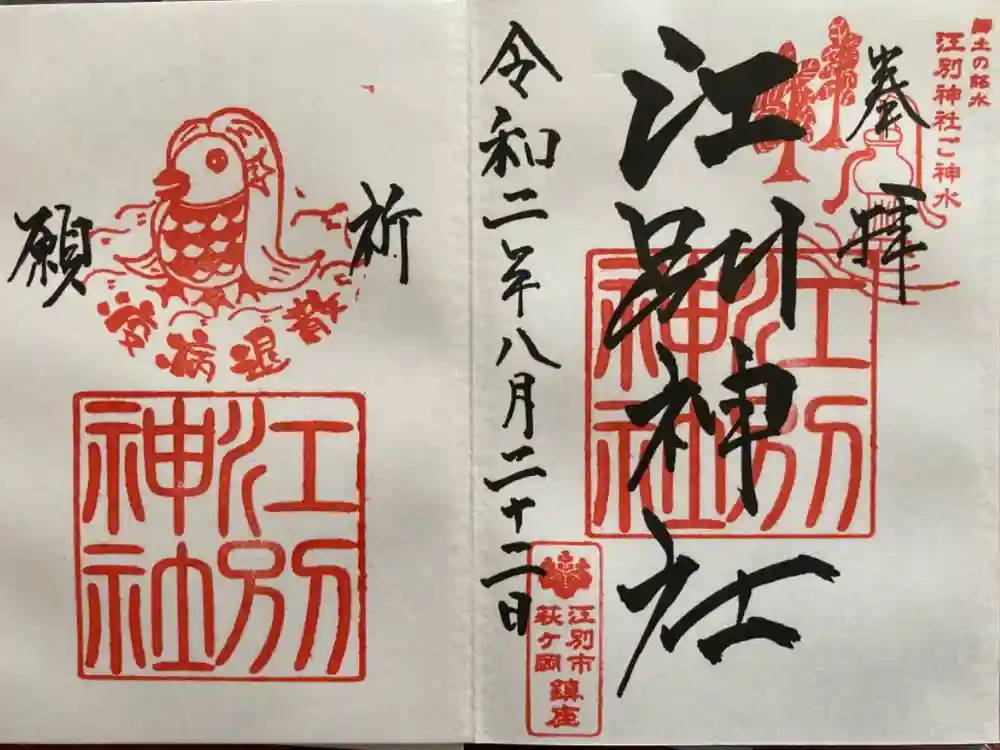 郷土の銘水
江別神社ご神水
奉拝
江別神社
江別神社
令和二年八月二十二日
江別市
萩ヶ岡
鎮座
祈願
疫病退散
江別神社